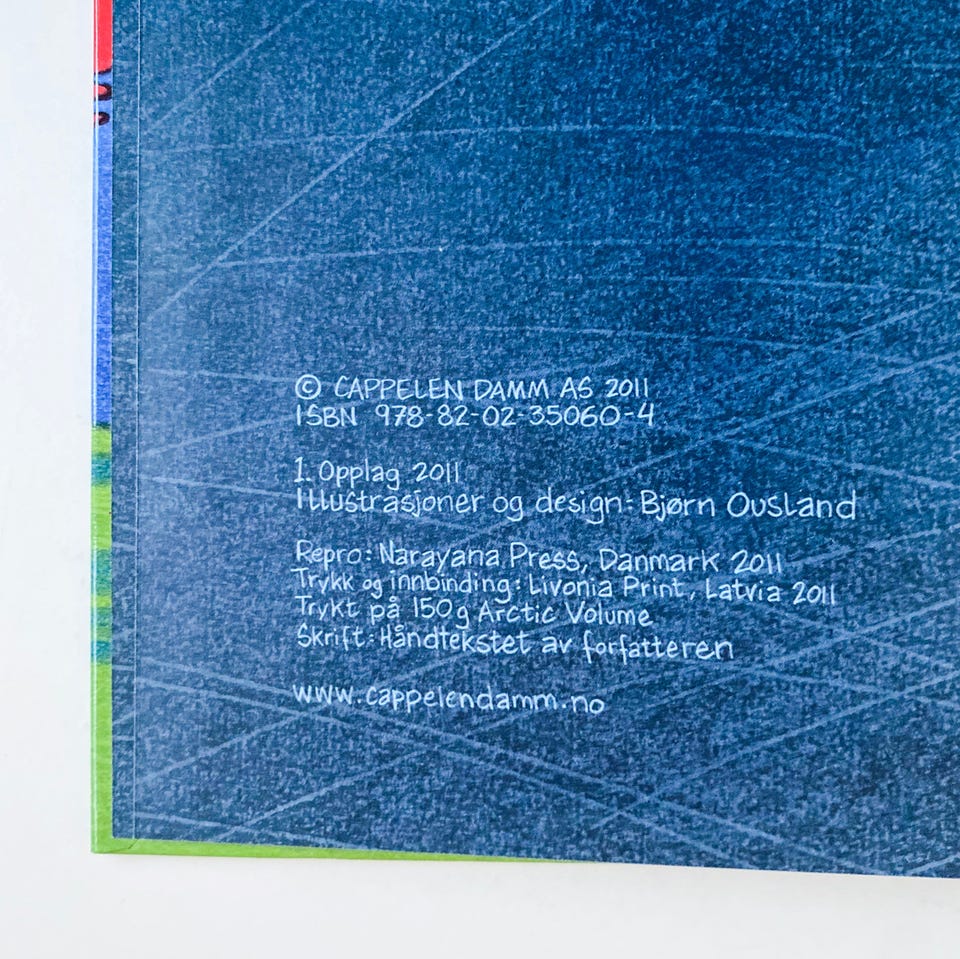 © CAPPELEN DAMM AS 2011
ISBN 978-82-02-35060-4
1. Opplag 2011
Illustrasjoner og design: Bjørn Ousland
Repro: Narayana Press, Danmark 2011
Trykk og innbinding: Livonia Print, Latvia 2011
Trykt på 150g Arctic Volume
Skrift: Håndtekstet av forfatteren
www.cappelendamm.no